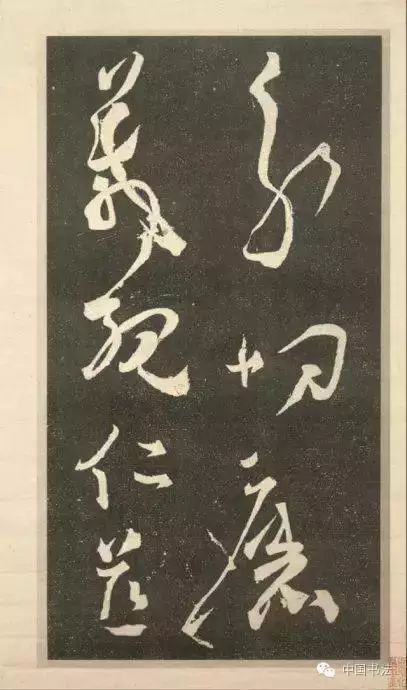 分切磨
箴規仁慈
中国书法